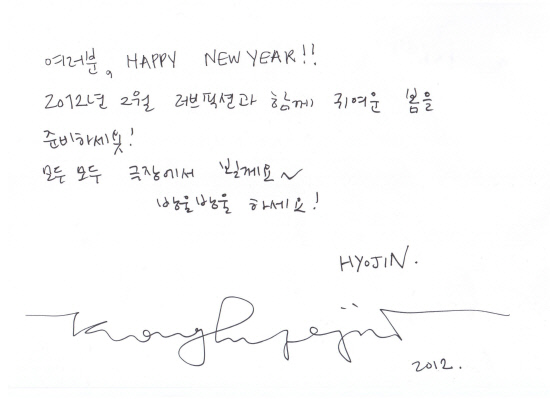 여러분, HAPPY NEW YEAR!!
2012년 2월 러브픽션과 함께 귀여운 봄을
준비하세욧!
모두 모두 극장에서 뵐께요~
방울방울 하세요!
HYOJIN.
Konghyojin
2012.